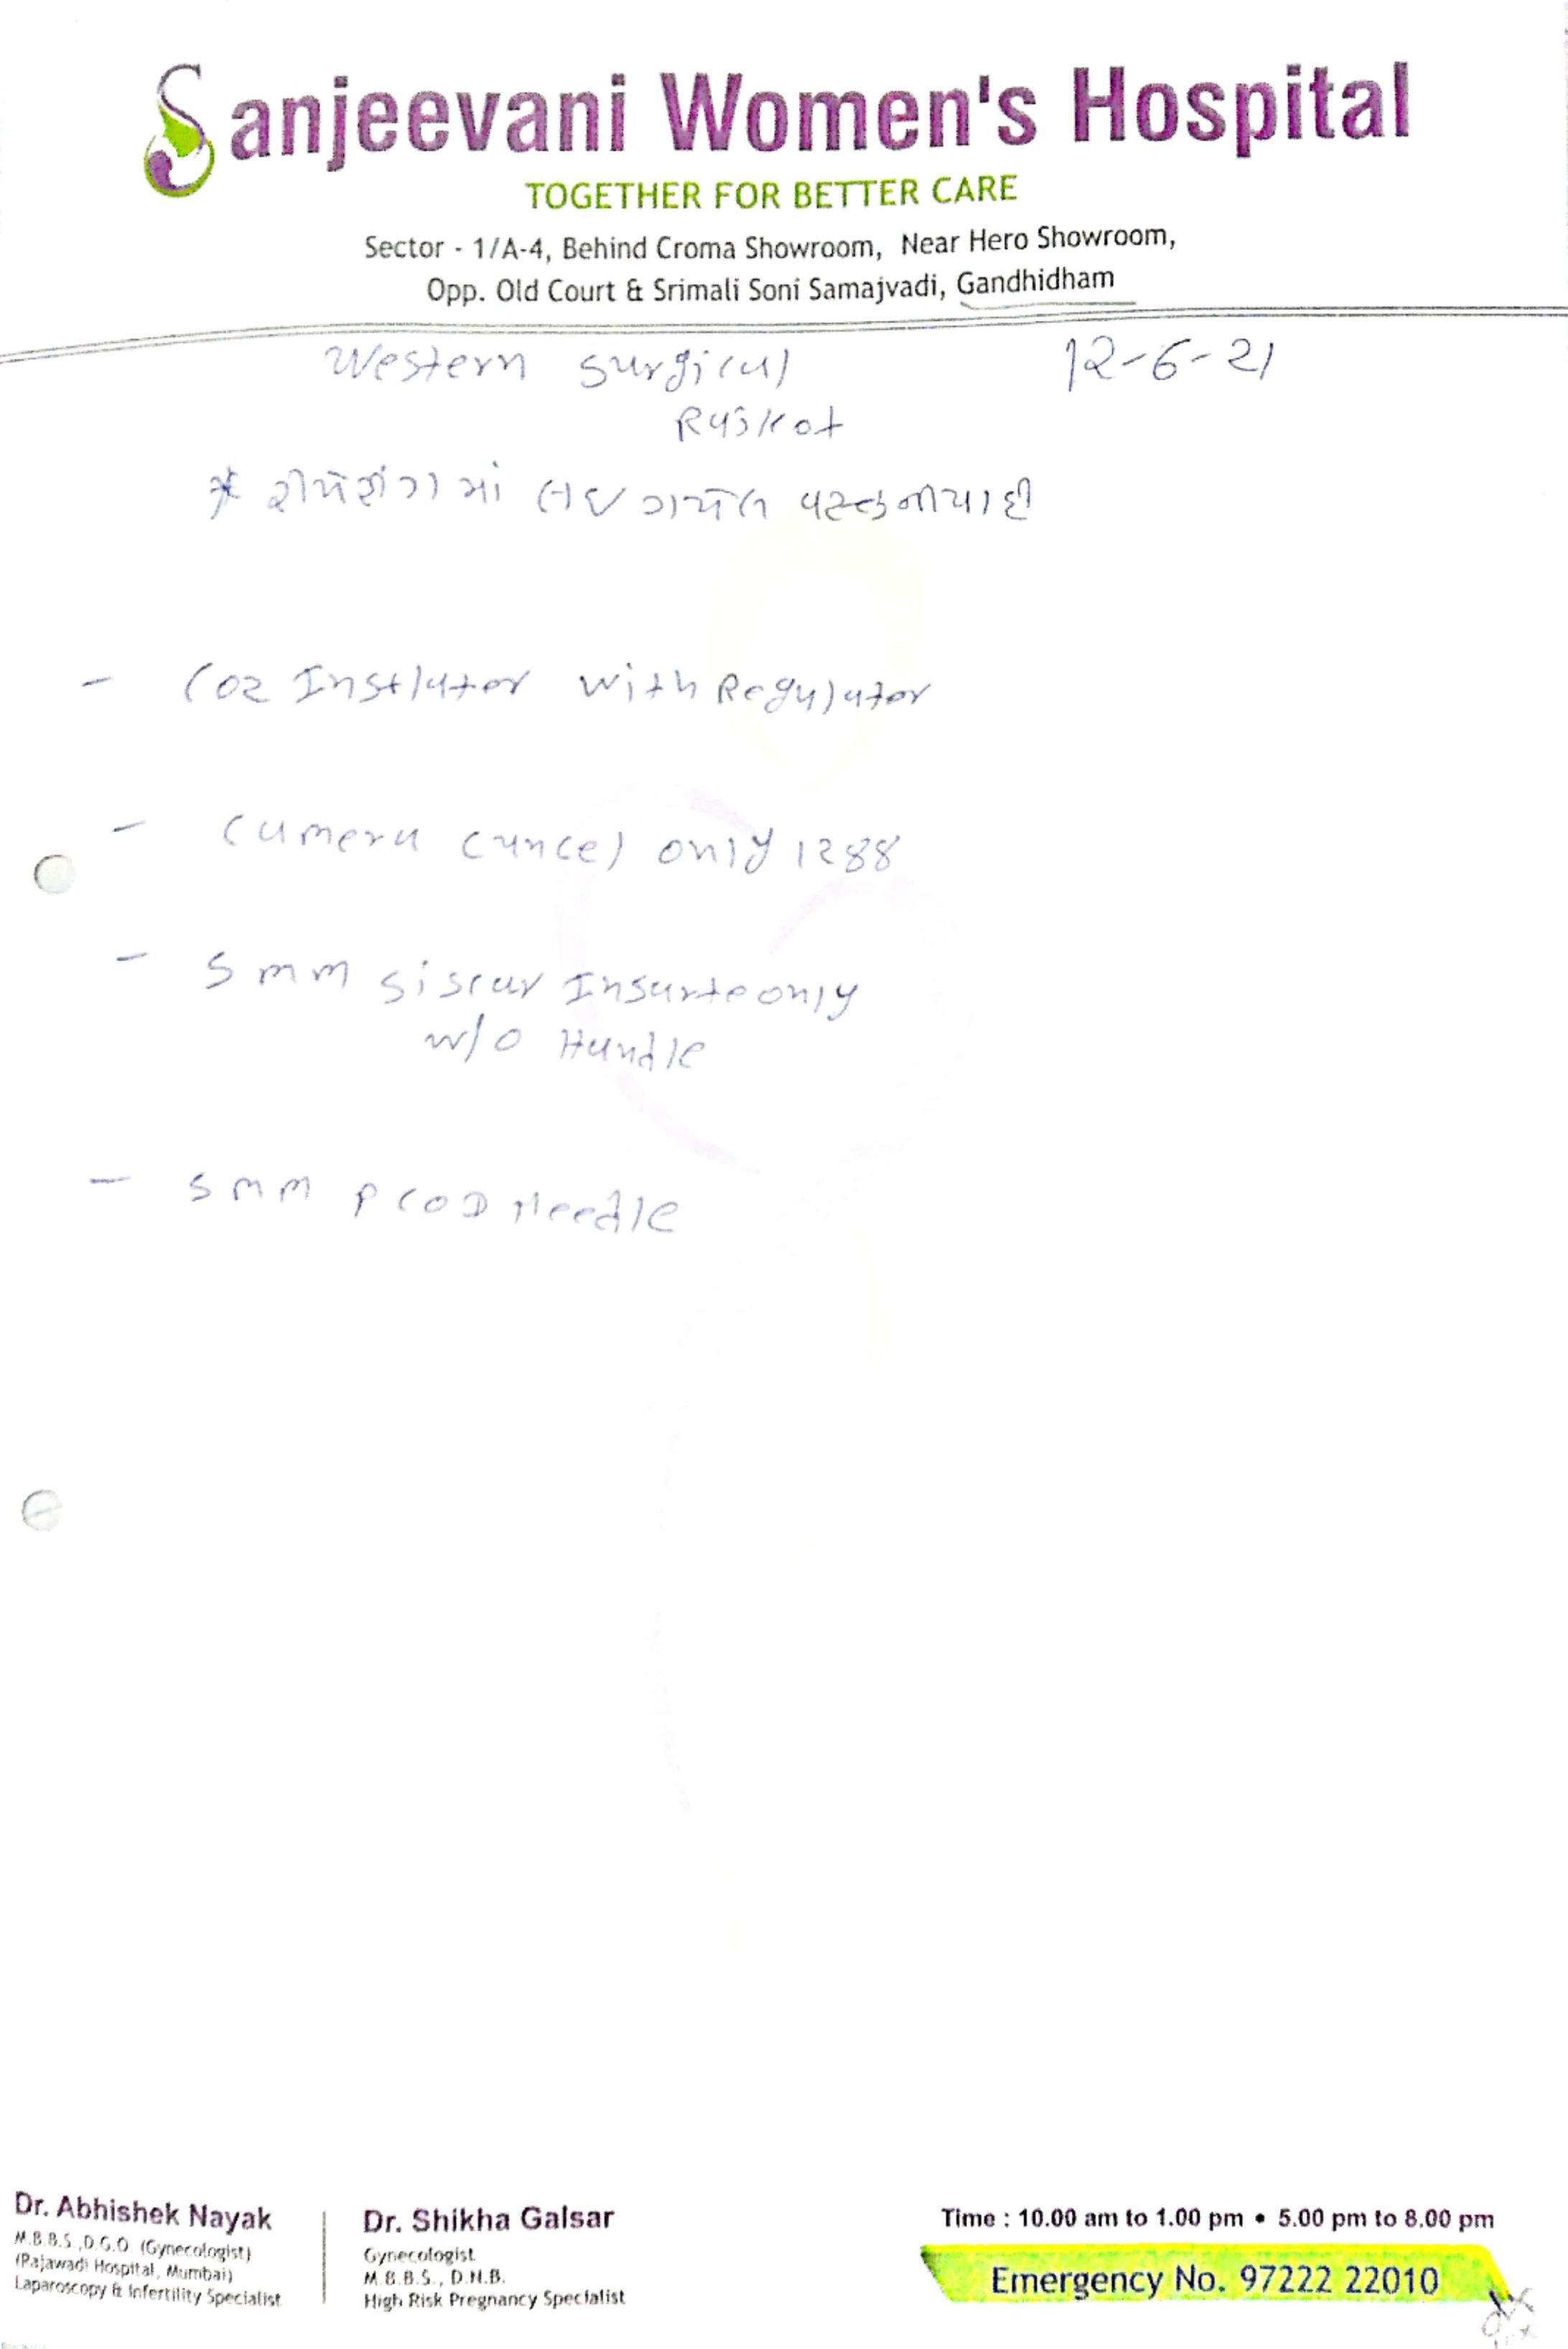 Sanjeevani Women's Hospital
TOGETHER FOR BETTER CARE
Sector - 1/A-4, Behind Croma Showroom, Near Hero Showroom,
Opp. Old Court & Srimali Soni Samajvadi, Gandhidham
Western Surgical 12-6-21
Rajkot
* રીપેરીંગ માં લઇ ગયેલ વસ્તુની યાદી
- CO2 Insflator with Regulator
- Camera Cancel only 1288
- 5 mm Siscar Insurte only
w/o Handle
- 5 mm PCOD Needle
Dr. Abhishek Nayak
M.B.B.S.,D.G.O. (Gynecologist)
(Rajawadi Hospital, Mumbai)
Laparoscopy & Infertility Specialist
Dr. Shikha Galsar
Gynecologist
M.B.B.S., D.N.B.
High Risk Pregnancy Specialist
Time : 10.00 am to 1.00 pm • 5.00 pm to 8.00 pm
Emergency No. 97222 22010